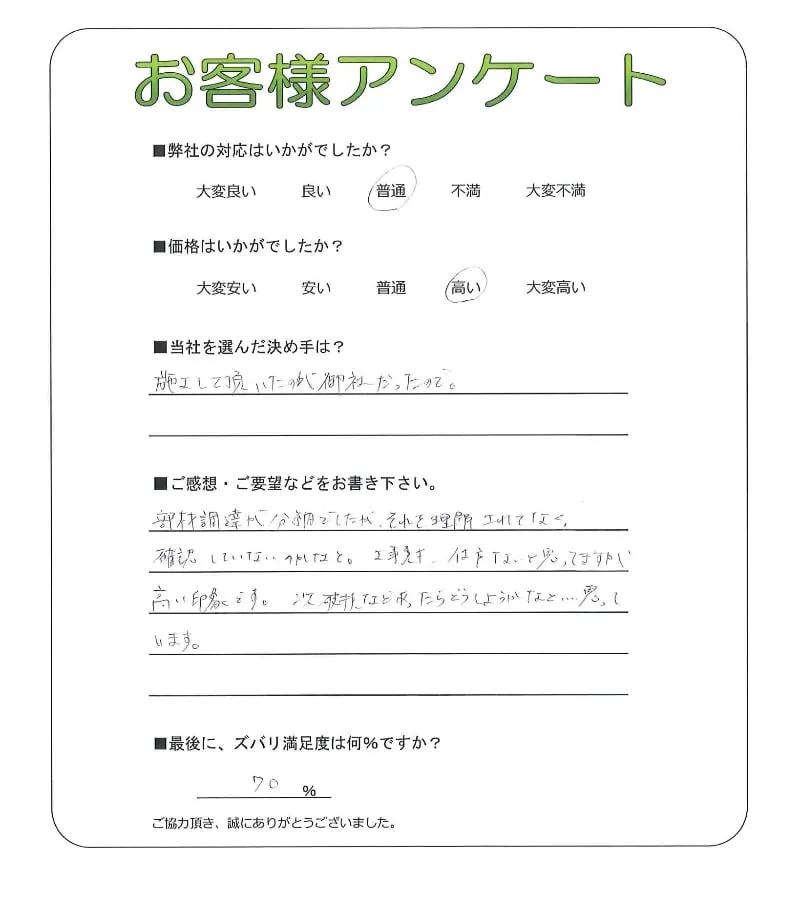 お客様アンケート
■弊社の対応はいかがでしたか？
大変良い 良い 普通 不満 大変不満
■価格はいかがでしたか？
大変安い 安い 普通 高い 大変高い
■当社を選んだ決め手は？
施工して頂いたのが御社だったので。
■ご感想・ご要望などをお書き下さい。
部材調達が分納でしたが、それを理解されてなく、
確認していないのかなと。工事費は、仕方ないと思ってますが
高い印象です。次、破損など来たらどうしようかなと…思って
います。
■最後に、ズバリ満足度は何％ですか？
70 %
ご協力頂き、誠にありがとうございました。